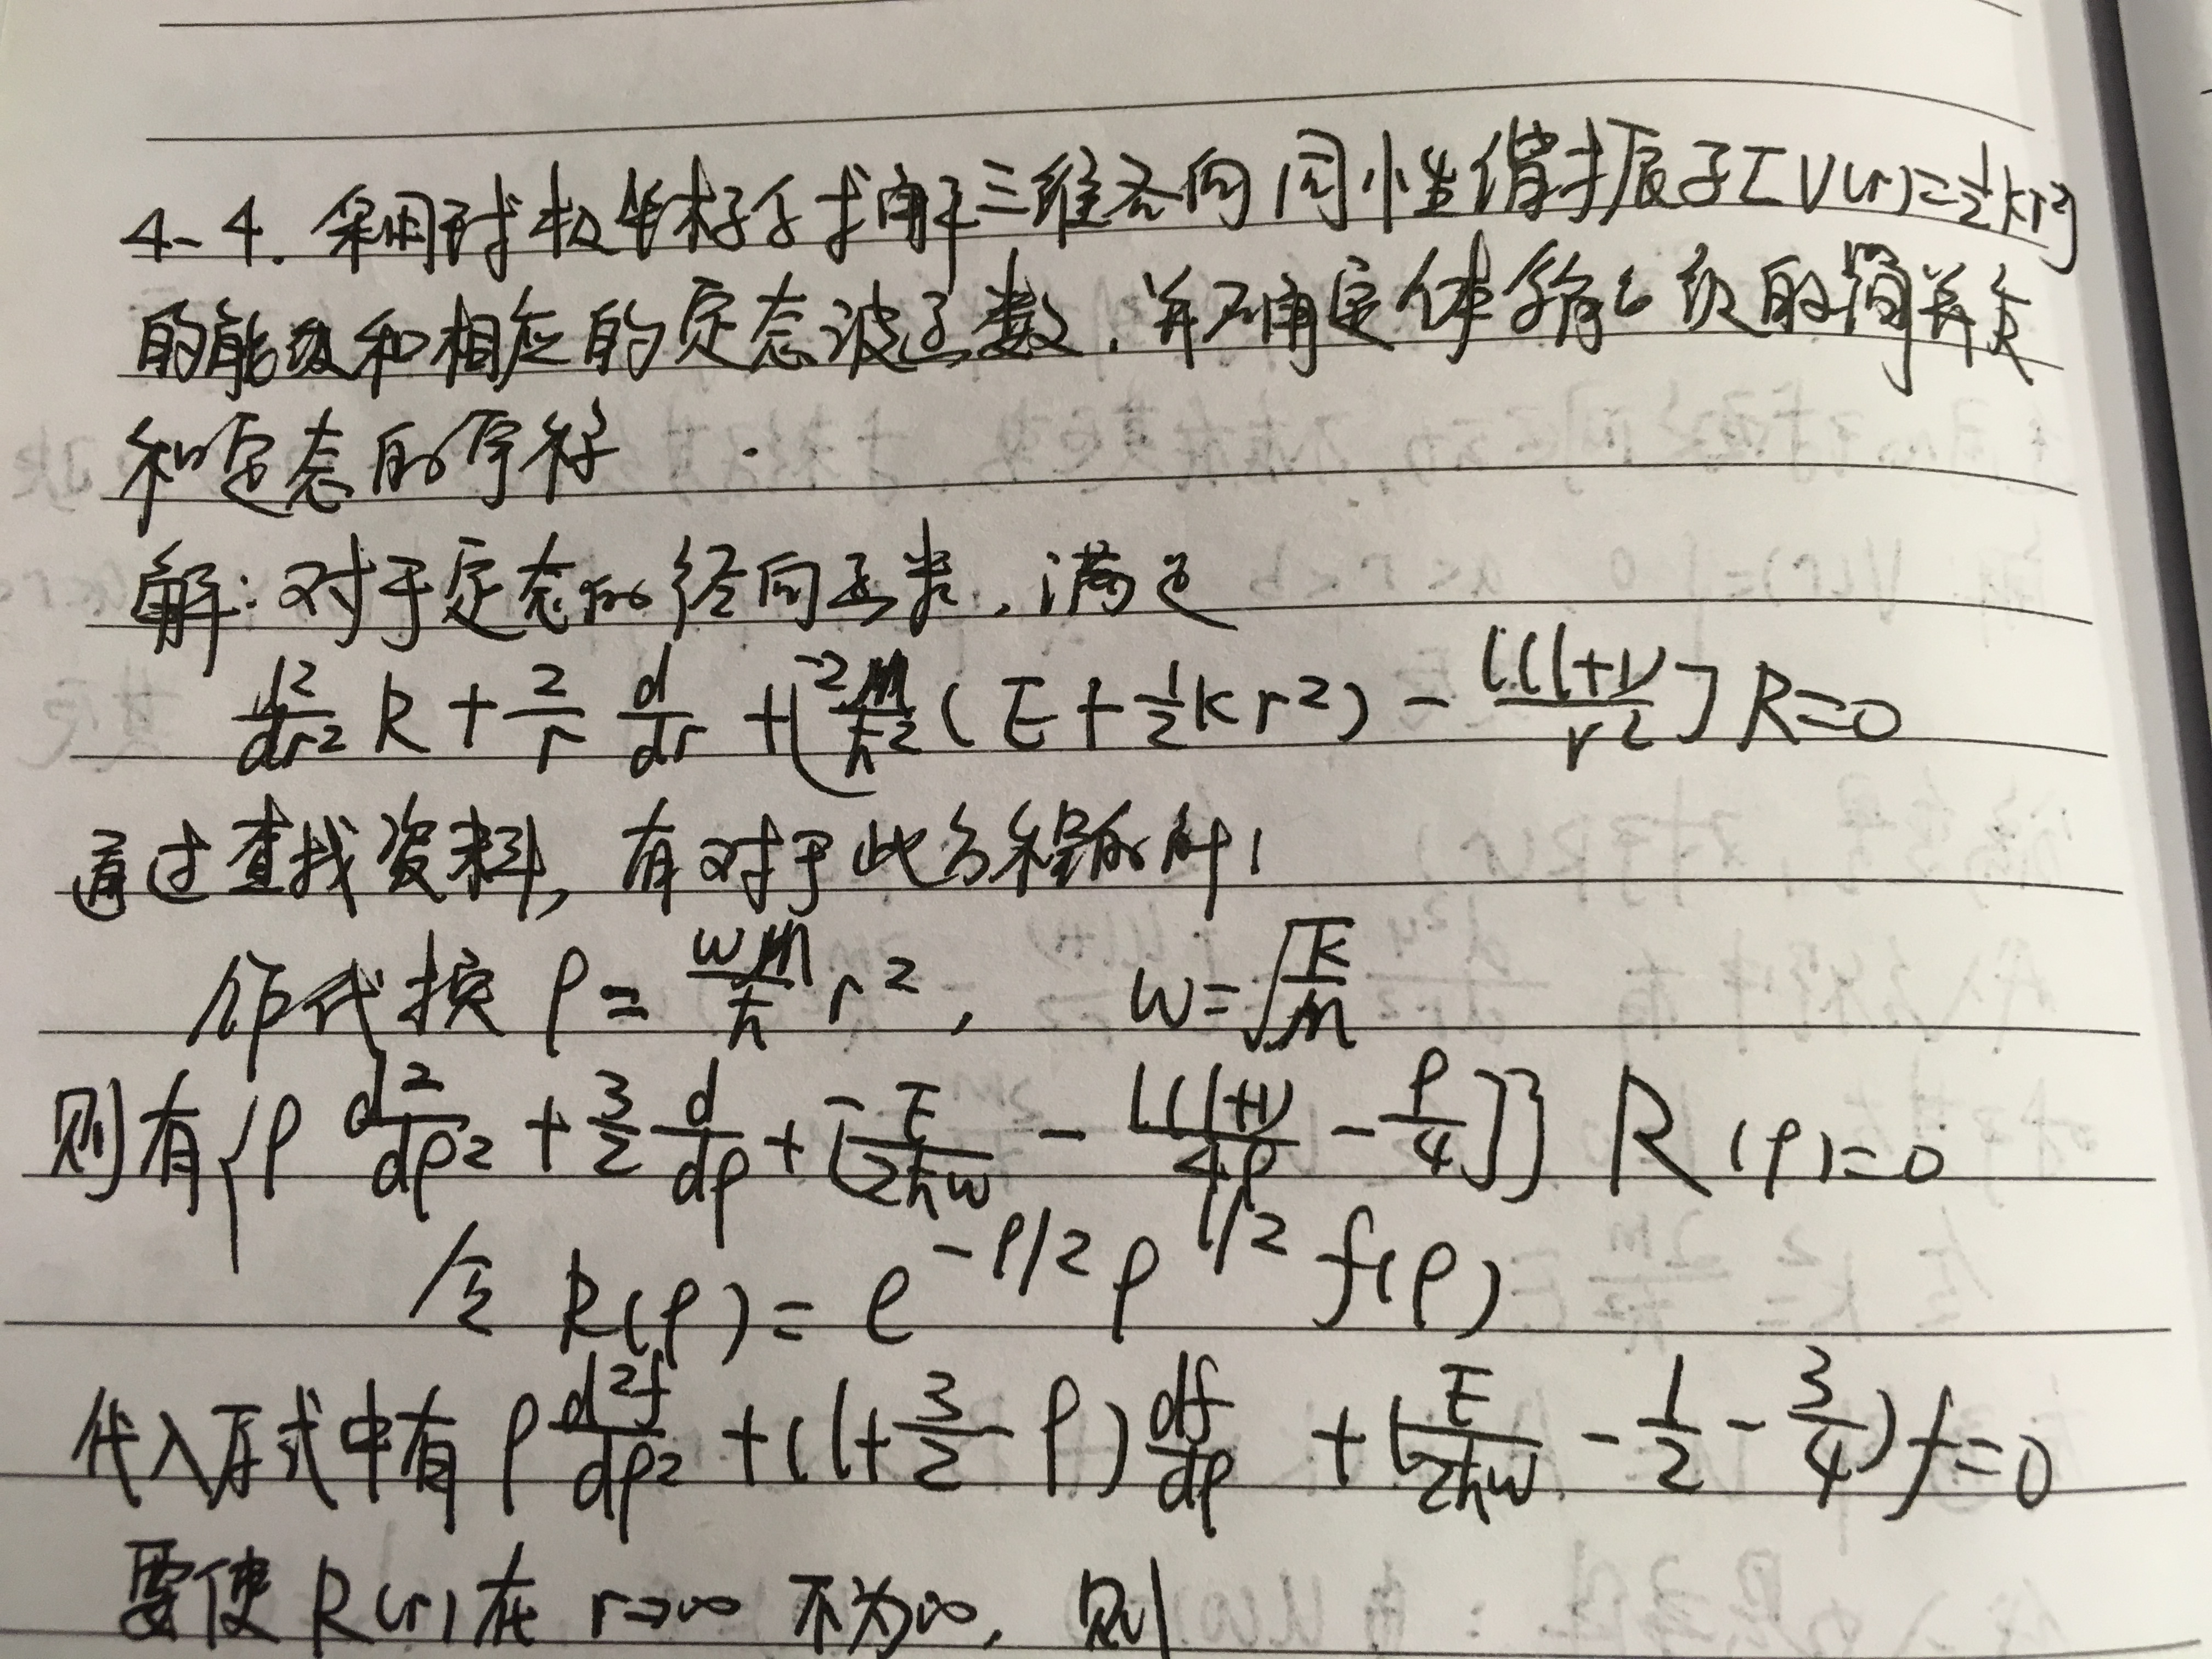 4-4. 采用球极坐标系求解三维各向同性谐振子[V(r)=½kr²]
的能级和相应的定态波函数,并确定体系能级的简并度
和定态的宇称
解:对于定态的径向函数,满足
d²/dr² R + 2/r d/dr + [2m/ħ² (E + ½kr²) - l(l+1)/r²] R = 0
通过查找资料,有对于此方程的解
作代换 ρ = ωm/ħ r², ω = √(k/m)
则有 {ρ d²/dρ² + 3/2 d/dρ + [E/2ħω - l(l+1)/4ρ - ρ/4]} R(ρ) = 0
令 R(ρ) = e^(-ρ/2) ρ^(l/2) f(ρ)
代入原式中有 ρ d²f/dρ² + (l + 3/2 - ρ) df/dρ + (E/2ħω - l/2 - 3/4) f = 0
要使 R(r) 在 r→∞ 不为∞, 则